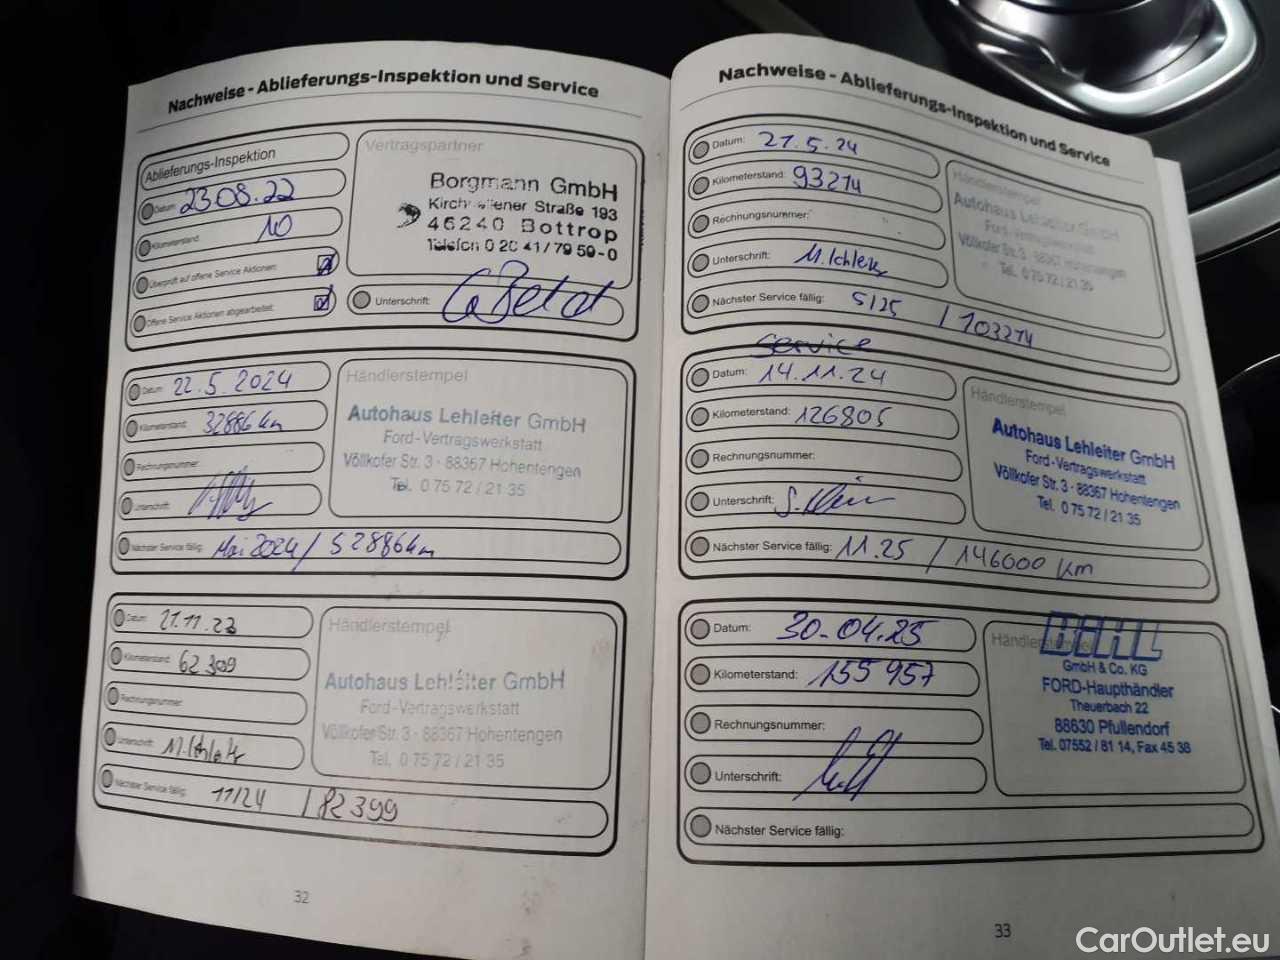 Nachweise - Ablieferungs-Inspektion und Service
Ablieferungs-Inspektion
Datum: 23.08.22
Kilometerstand: 10
Überprüft auf offene Service Aktionen:
Offene Service Aktionen abgearbeitet:
Vertragspartner
Borgmann GmbH
Straße 193
46240 Bottrop
Telefon 0 20 41/79 59-0
Unterschrift:
Datum: 22.5.2024
Kilometerstand: 32886 km
Rechnungsnummer:
Unterschrift:
Nächster Service fällig: Mai 2024 / 52886 km
Händlerstempel
Autohaus Lehleiter GmbH
Ford-Vertragswerkstatt
Völlkofer Str. 3 - 88367 Hohentengen
Tel. 0 75 72 / 21 35
Datum: 21.11.23
Kilometerstand: 62399
Rechnungsnummer:
Unterschrift:
Nächster Service fällig: 11/24 / 82399
Händlerstempel
Autohaus Lehleiter GmbH
Ford-Vertragswerkstatt
Völlkofer Str. 3 - 88367 Hohentengen
Tel. 0 75 72 / 21 35
32
Nachweise - Ablieferungs-Inspektion und Service
Datum: 21.5.24
Kilometerstand: 93214
Rechnungsnummer:
Unterschrift:
Nächster Service fällig: 5/25 / 103214
Händlerstempel
Autohaus Lehleiter GmbH
Ford-Vertragswerkstatt
Völlkofer Str. 3 - 88367 Hohentengen
Tel. 0 75 72 / 21 35
Service
Datum: 14.11.24
Kilometerstand: 126805
Rechnungsnummer:
Unterschrift: S. Klein
Nächster Service fällig: 11.25 / 146000 km
Händlerstempel
Autohaus Lehleiter GmbH
Ford-Vertragswerkstatt
Völlkofer Str. 3 - 88367 Hohentengen
Tel. 0 75 72 / 21 35
Datum: 30.04.25
Kilometerstand: 155957
Rechnungsnummer:
Unterschrift:
Nächster Service fällig:
Händlerstempel
BIHL
GmbH & Co. KG
FORD-Haupthändler
Theuerbach 22
88630 Pfullendorf
Tel. 07552 / 81 14, Fax 45 38
33
CarOutlet.eu